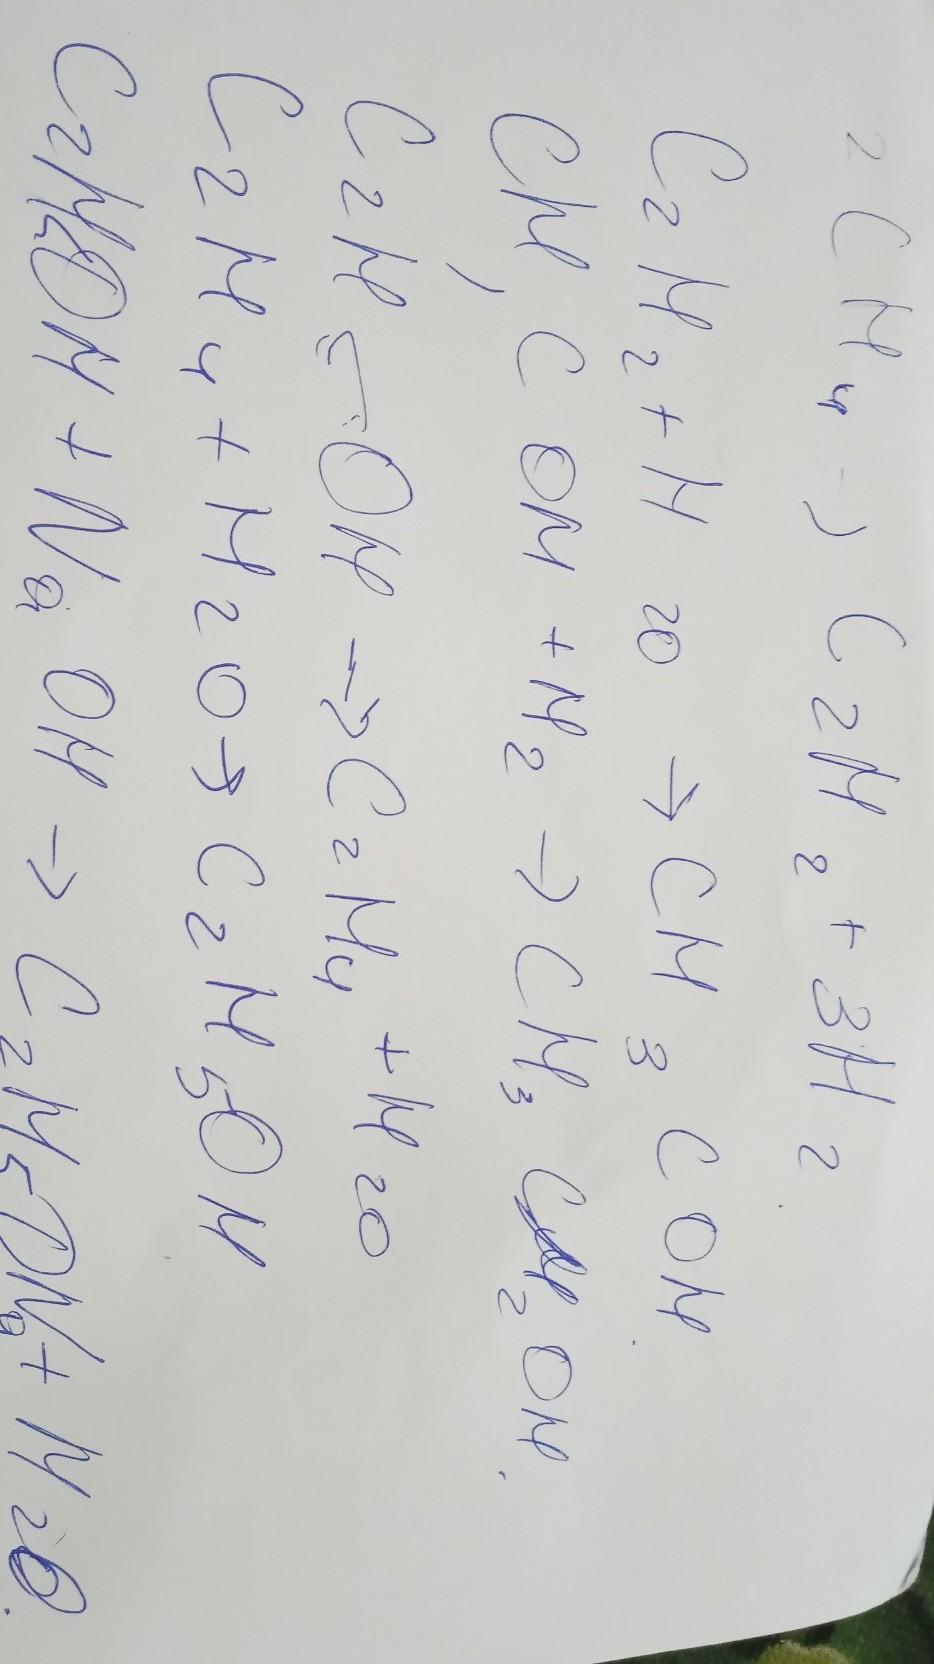 2CH4 → C2H2 + 3H2
C2H2 + H2O → CH3COH.
CH, COH + H2 → CH3CH2OH.
C2H5OH → C2H4 + H2O
C2H4 + H2O → C2H5OH
C2H5OH + NaOH → C2H5ONa + H2O.